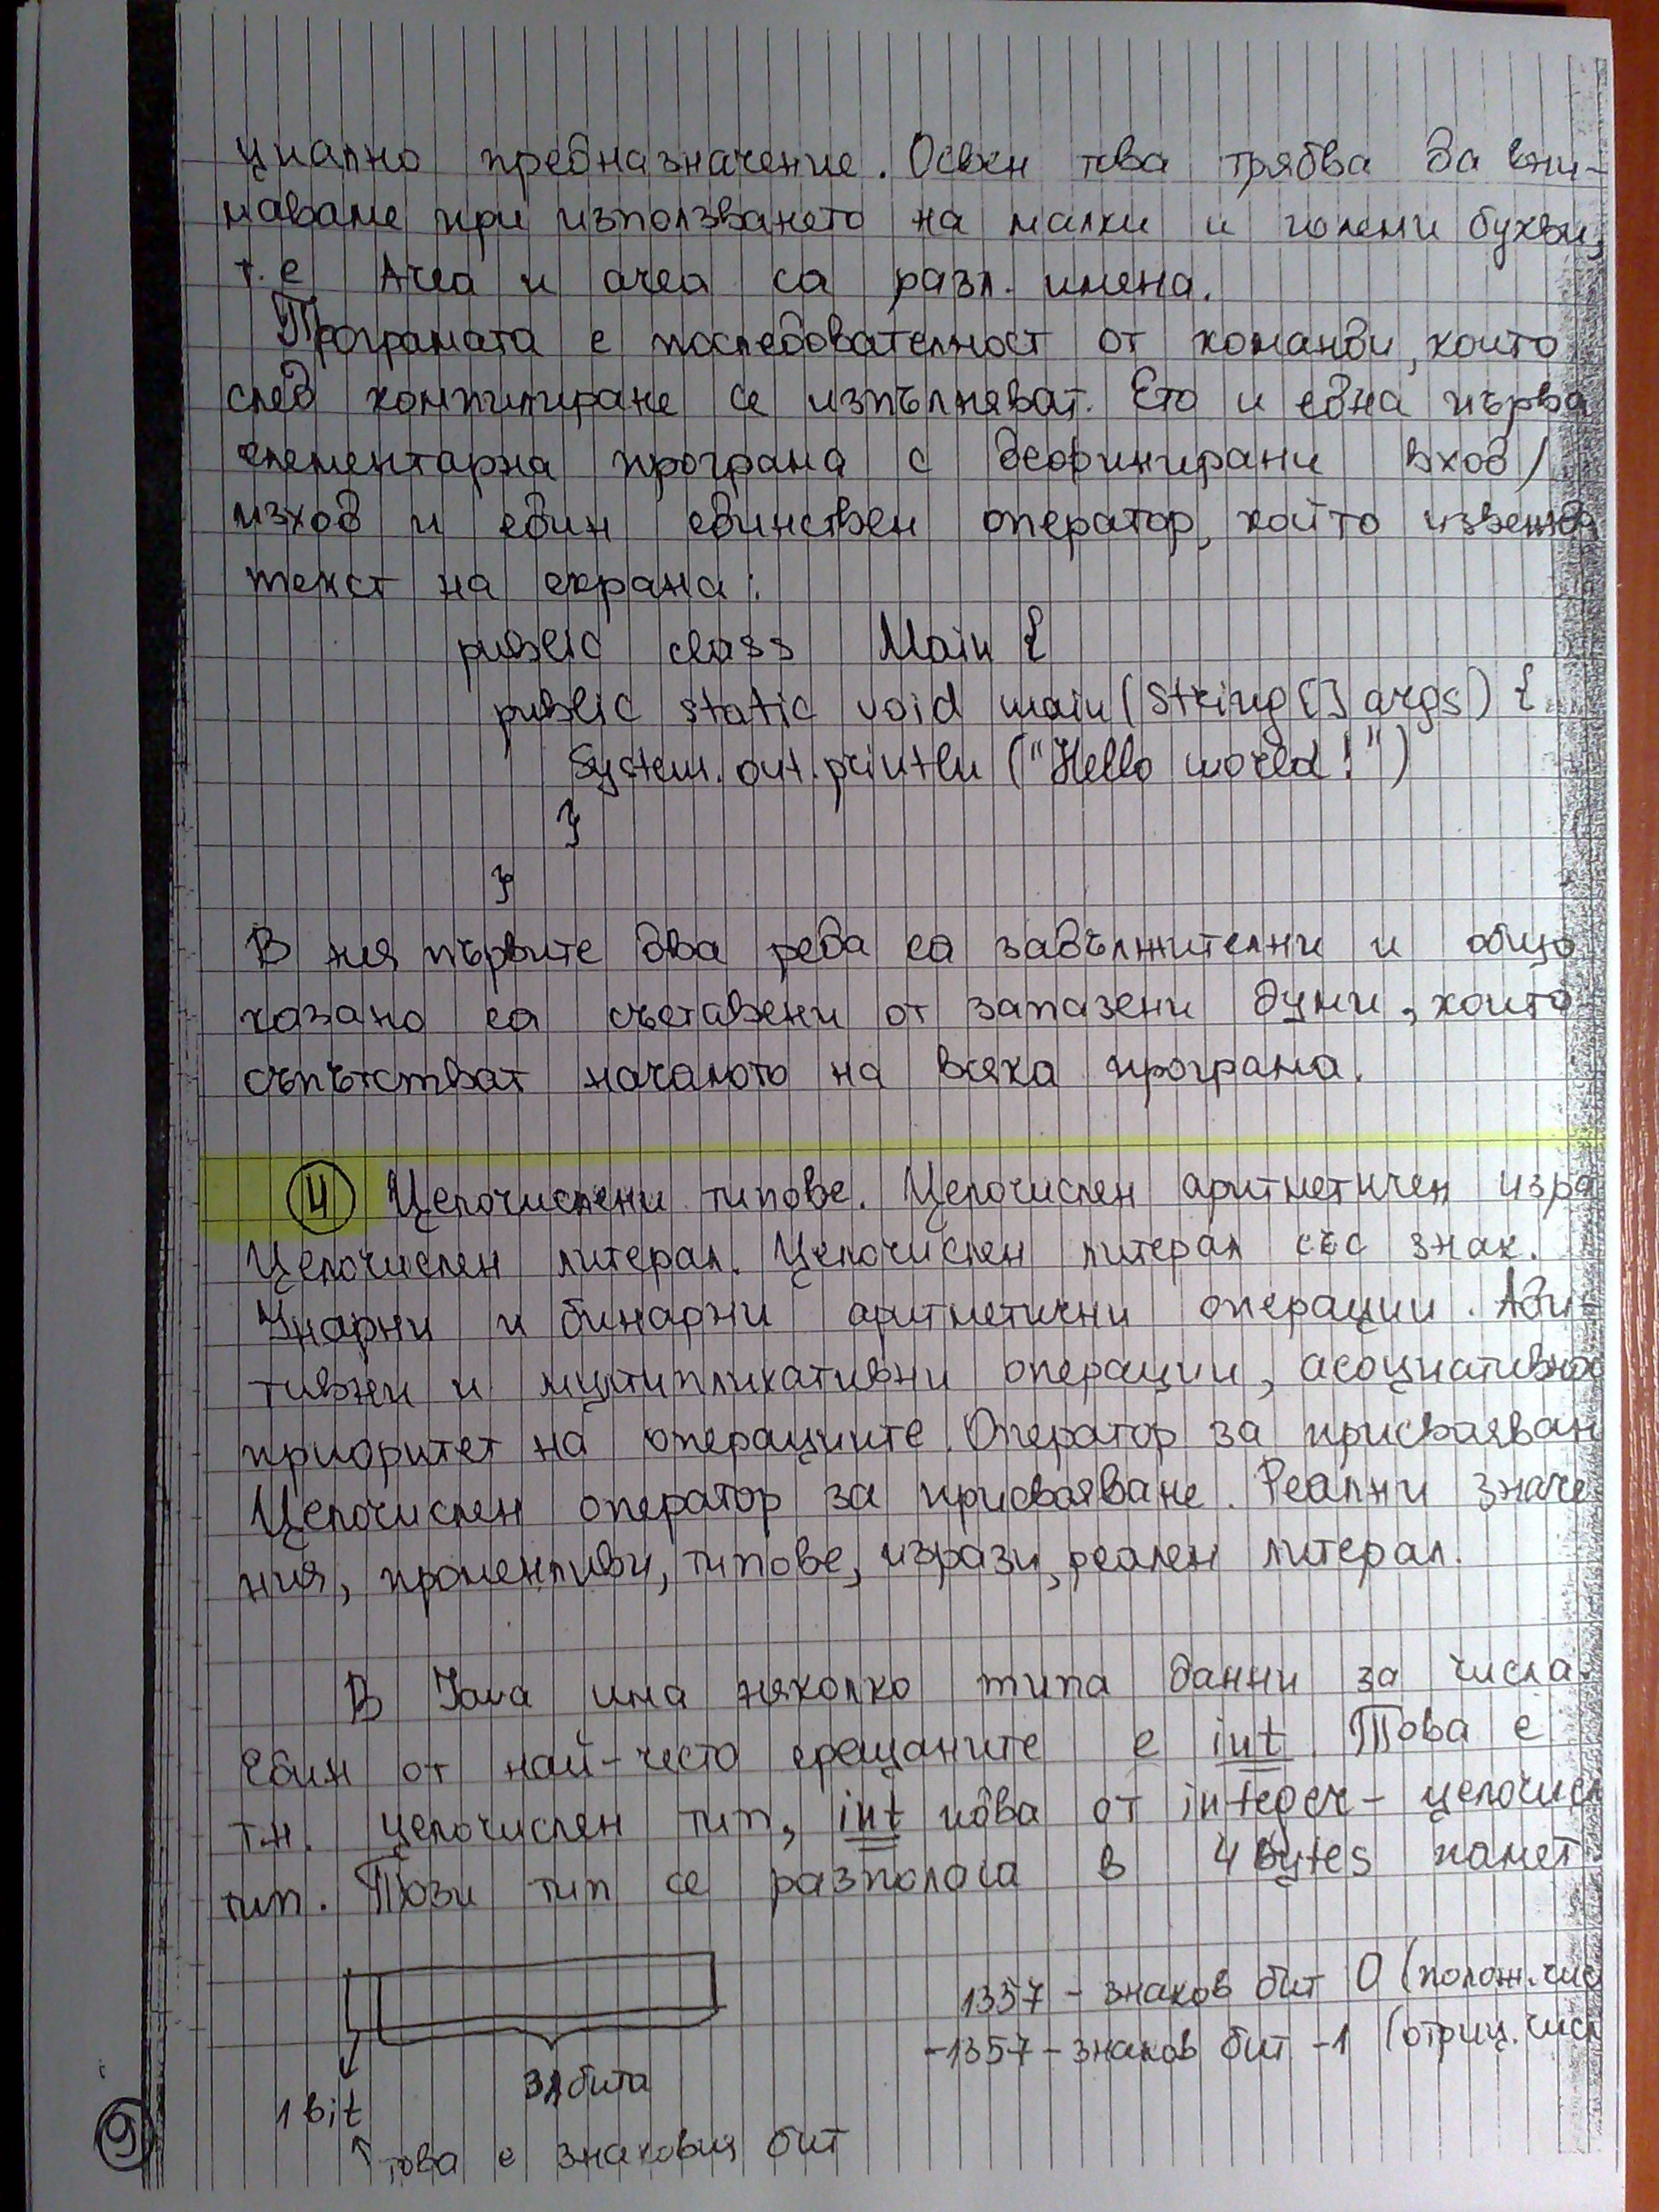 циално предназначение. Освен това трябва да вни-
маваме при използването на малки и големи букви,
т.е Area и area са разл. имена.
Програмата е последователност от команди, които
след компилиране се изпълняват. Ето и една първа
елементарна програма с дефинирани вход/
изход и един единствен оператор, който извежда
текст на екрана:
public class Main {
public static void main(String[] args) {
System.out.println("Hello world!")
}
}
В нея първите два реда са задължителни и общо
казано са съставени от запазени думи, които
съпътстват началото на всяка програма.
4 Целочислени типове. Целочислен аритметичен изра
Целочислен литерал. Целочислен литерал със знак.
Унарни и бинарни аритметични операции. Ади-
тивни и мултипликативни операции, асоциативно
приоритет на операциите. Оператор за присвояван
Целочислен оператор за присвояване. Реални значе
ния, променливи, типове, изрази, реален литерал.
В Java има няколко типа данни за числа.
Един от най-често срещаните е int. Това е
т.н. целочислен тип, int идва от integer - целочисл
тип. Този тип се разполага в 4 bytes памет
1357 - знаков бит 0 (полож.чис
-1357 - знаков бит -1 (отриц.числ
31 бита
1 bit
това е знаковия бит
9